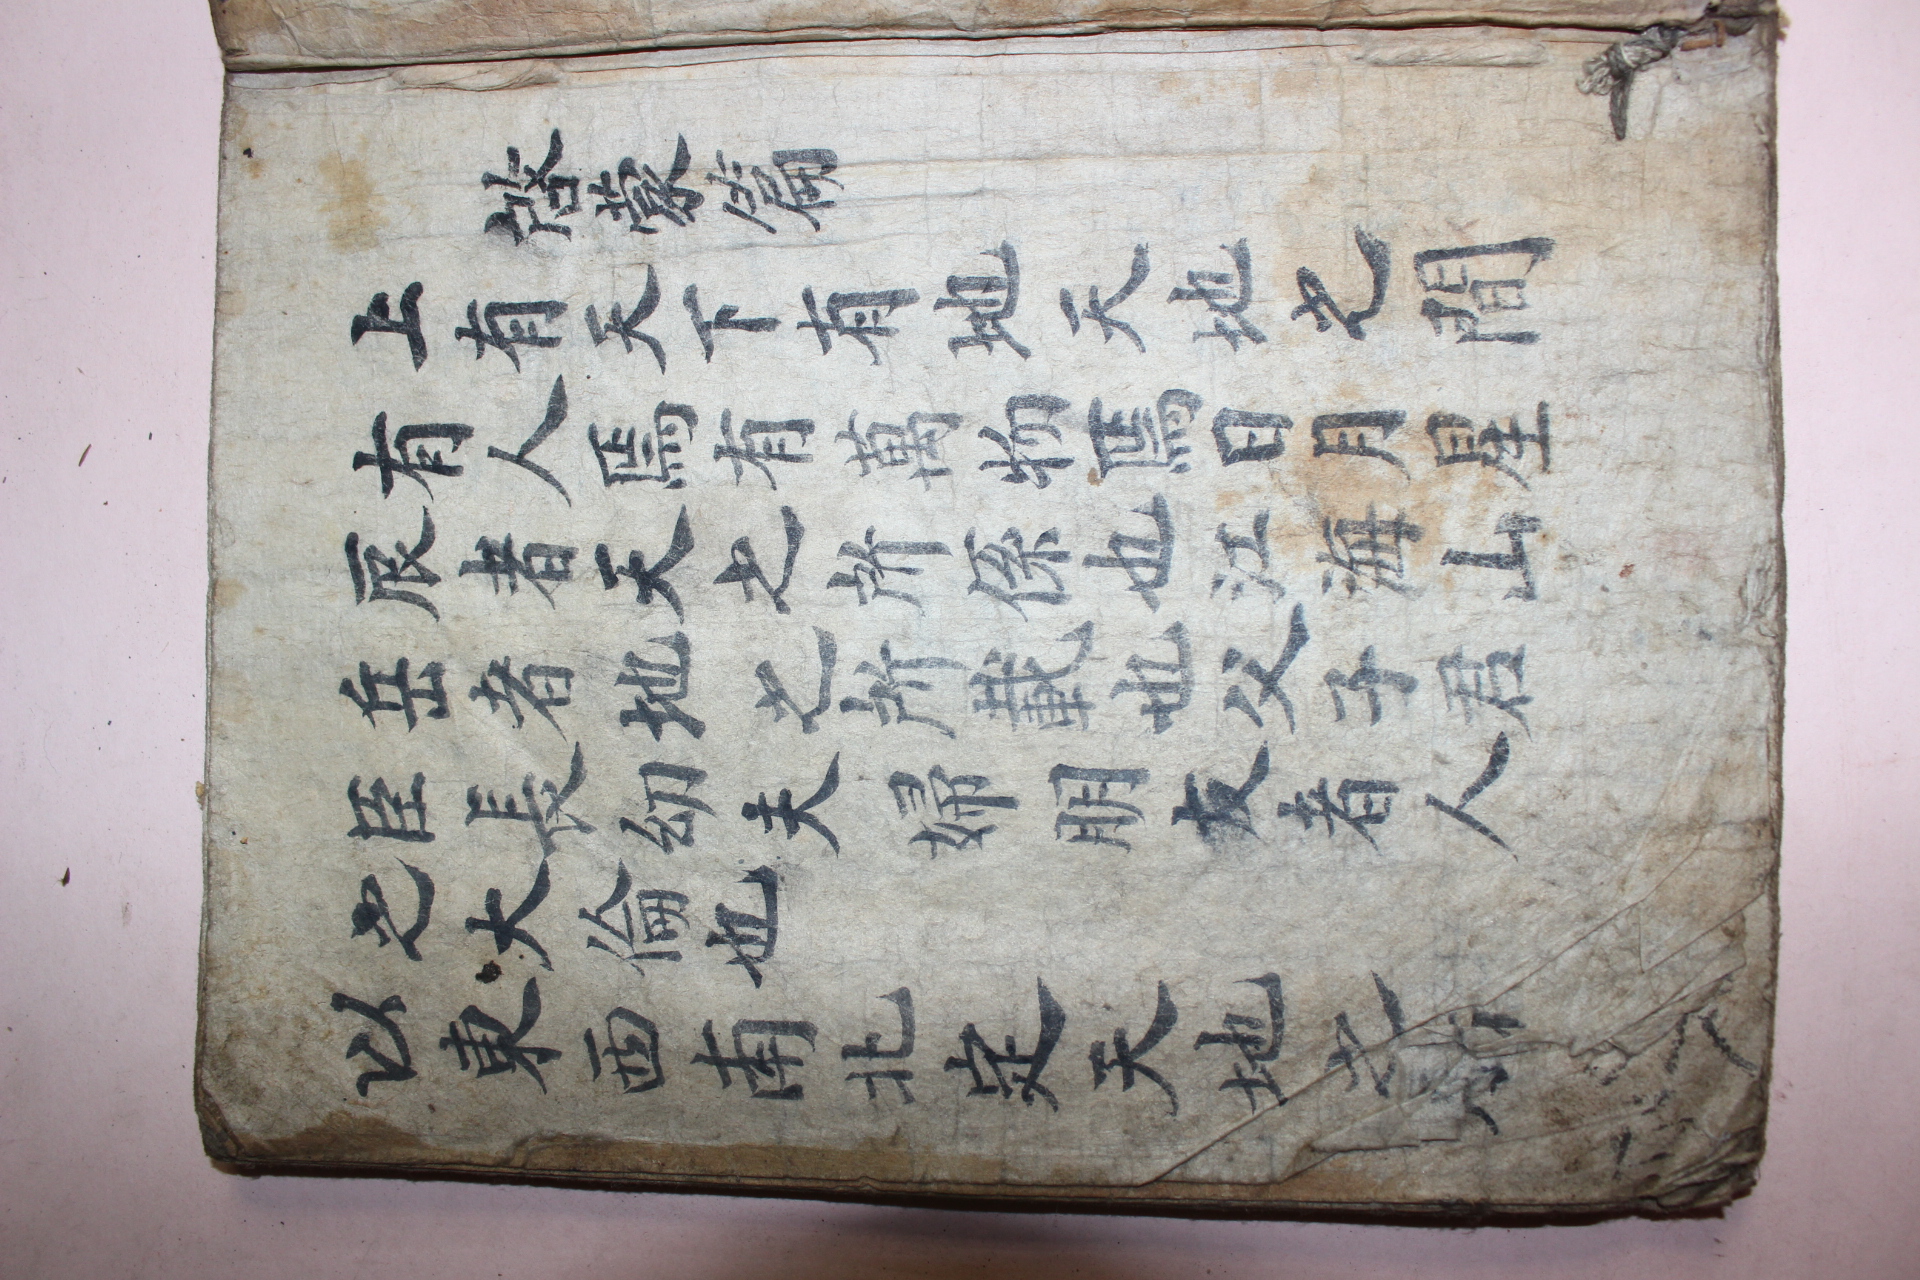 啓蒙篇
上有天下有地天地之間
有人焉有萬物焉日月星
辰者天之所係也江海山
岳者地之所載也父子君
臣長幼夫婦朋友者人
之大倫也
以東西南北定天地之